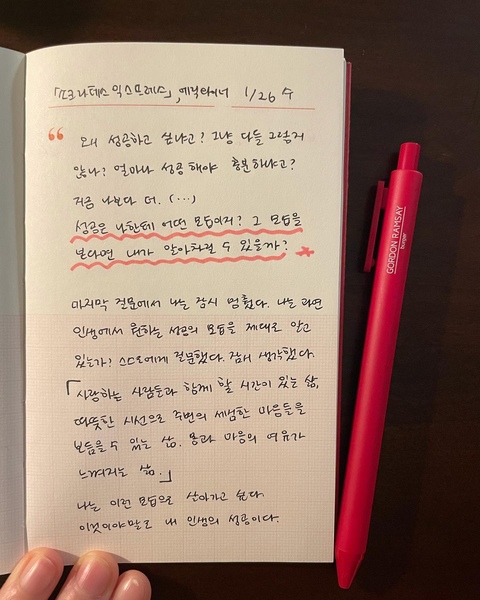 「소크라테스 익스프레스」, 에릭 와이너 1/26 수
“ 왜 성공하고 싶냐고? 그냥 다들 그렇지
않나? 얼마나 성공해야 충분하냐고?
지금 나보다 더. (…)
성공은 나한테 어떤 모습이지? 그 모습을
본다면 내가 알아차릴 수 있을까?
마지막 질문에서 나는 잠시 멈췄다. 나는 과연
인생에서 원하는 성공의 모습을 제대로 알고
있는가? 스스로에게 질문했다. 잠시 생각했다.
「사랑하는 사람들과 함께 할 시간이 있는 삶,
따뜻한 시선으로 주변의 세밀한 마음들을
보듬을 수 있는 삶. 몸과 마음의 여유가
느껴지는 삶.」
나는 이런 모습으로 살아가고 싶다.
이것이야말로 내 인생의 성공이다.
GORDON RAMSAY
burger